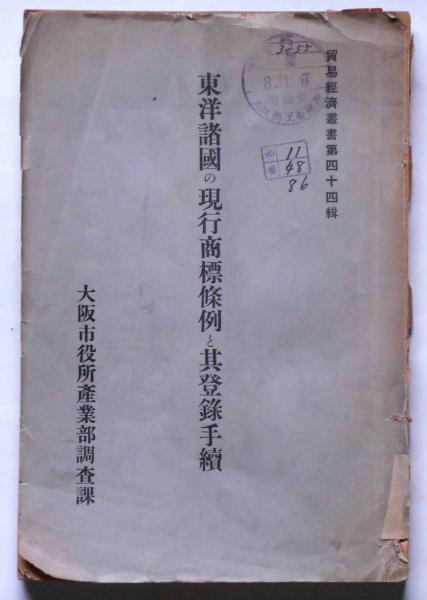 貿易經濟叢書第四十四輯
東洋諸國の現行商標條例と其登錄手續
大阪市役所產業部調查課
3455
8.11.8
11
48
86